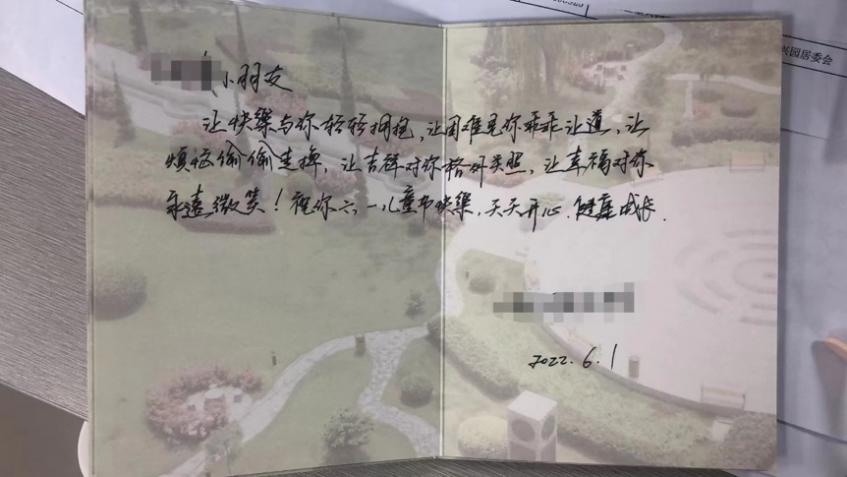 兴园居委会
小朋友
让快樂与你轻轻拥抱,让困难见你乖乖让道,让
烦恼偷偷走掉,让吉祥对你格外关照,让幸福对你
永远微笑!祝你六一儿童节快樂,天天开心.健康成长.
2022.6.1